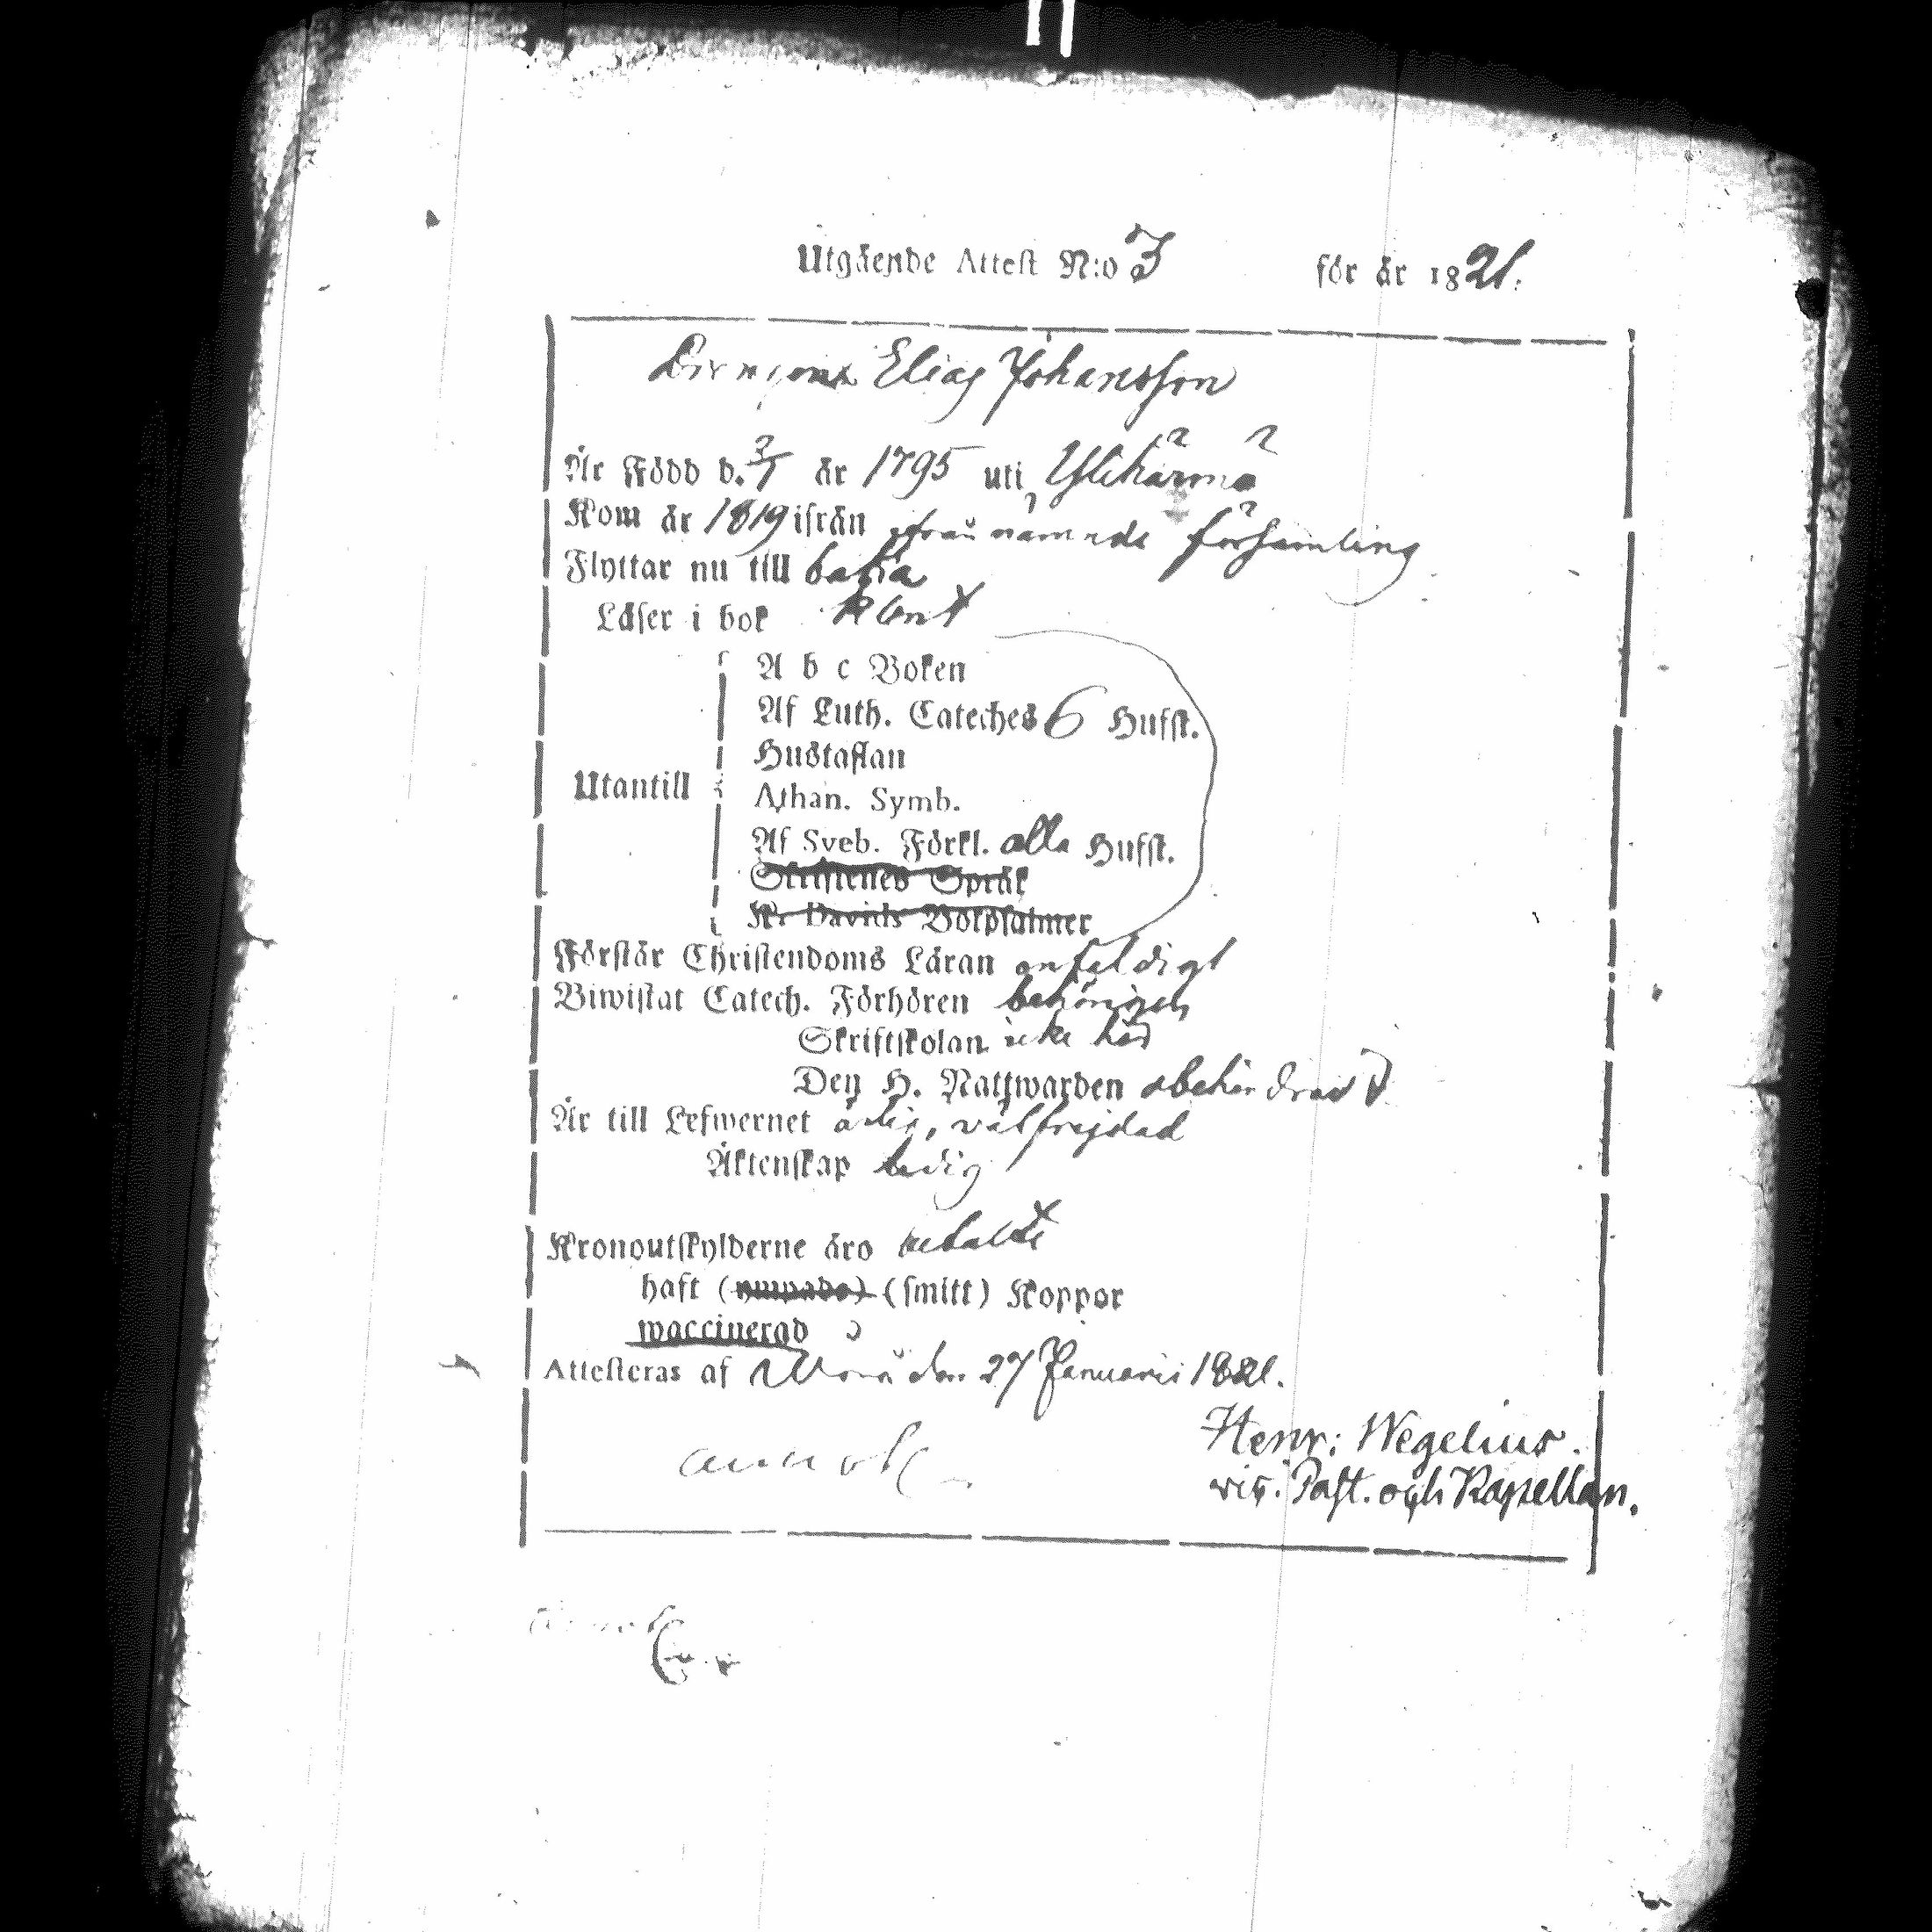 Utgående Attest N:o 3 för år 1821.
Drengen Elias Johansson
Är Född d. 3/7 år 1795 uti Ylihärmä
Kom år 1819 ifrån ofvannämnde församling
Flyttar nu till baka
Läser i bok Rent
A b c Boken
Af Luth. Cateches 6 Hufst.
Hustaflan
Utantill
Athan. Symb.
Af Sveb. Förkl. alla Hufst.
Skriftenes Språk
K. Davids Botpsalmer
Förstår Christendoms Läran enfaldigt
Biwistat Catech. Förhören behörigen
Skriftskolan icke här
Den H. Nattwarden obehindrad
Är till Lefwernet ärlig, välfrejdad
Äktenskap ledig
Kronoutskylderne äro betalte
haft (ympade) (smitt) Koppor
waccinerad
Attesteras af Wörå den 27 Januarii 1821.
Henr: Wegelius.
vic. Past. och Kapellan.